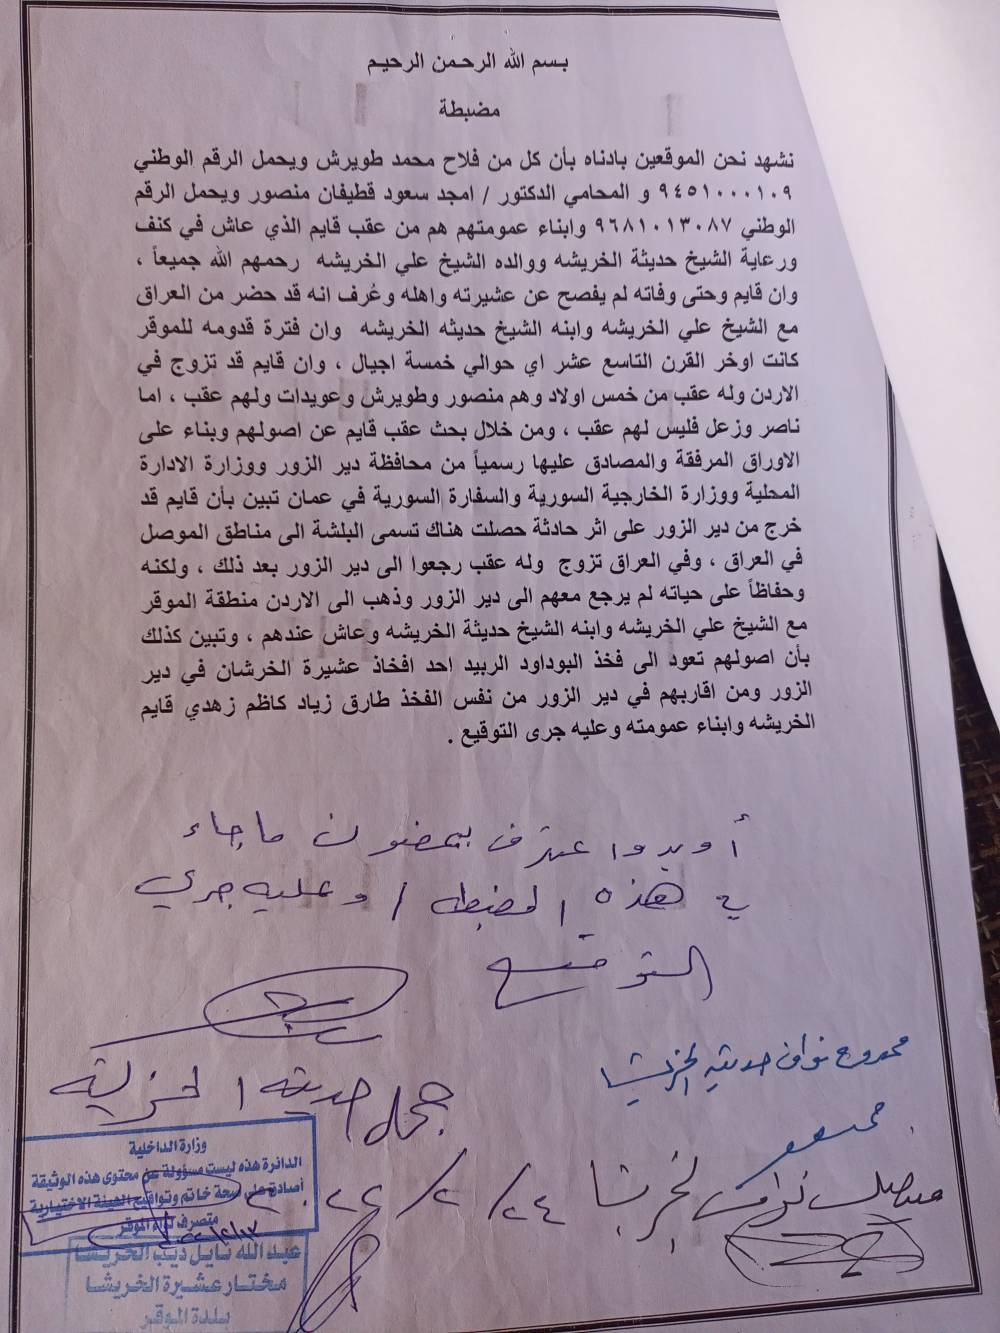 بسم الله الرحمن الرحيم
مضبطة
نشهد نحن الموقعين بادناه بأن كل من فلاح محمد طويرش ويحمل الرقم الوطني
٩٤٥١٠٠٠١٠٩ و المحامي الدكتور / امجد سعود قطيفان منصور ويحمل الرقم
الوطني ٩٦٨١٠١٣٠٨٧ وابناء عمومتهم هم من عقب قايم الذي عاش في كنف
ورعاية الشيخ حديثة الخريشه ووالده الشيخ علي الخريشه رحمهم الله جميعاً ،
وان قايم وحتى وفاته لم يفصح عن عشيرته واهله وعُرف انه قد حضر من العراق
مع الشيخ علي الخريشه وابنه الشيخ حديثه الخريشه وان فترة قدومه للموقر
كانت اوخر القرن التاسع عشر اي حوالي خمسة اجيال ، وان قايم قد تزوج في
الاردن وله عقب من خمس اولاد وهم منصور وطويرش وعويدات ولهم عقب ، اما
ناصر وزعل فليس لهم عقب ، ومن خلال بحث عقب قايم عن اصولهم وبناء على
الاوراق المرفقة والمصادق عليها رسمياً من محافظة دير الزور ووزارة الادارة
المحلية ووزارة الخارجية السورية والسفارة السورية في عمان تبين بأن قايم قد
خرج من دير الزور على اثر حادثة حصلت هناك تسمى البلشة الى مناطق الموصل
في العراق ، وفي العراق تزوج وله عقب رجعوا الى دير الزور بعد ذلك ، ولكنه
وحفاظاً على حياته لم يرجع معهم الى دير الزور وذهب الى الاردن منطقة الموقر
مع الشيخ علي الخريشه وابنه الشيخ حديثة الخريشه وعاش عندهم ، وتبين كذلك
بأن اصولهم تعود الى فخذ البوداود الربيد احد افخاذ عشيرة الخرشان في دير
الزور ومن اقاربهم في دير الزور من نفس الفخذ طارق زياد كاظم زهدي قايم
الخريشه وابناء عمومته وعليه جرى التوقيع .
أؤيد واعترف بمضمون ماجاء
في هذه المضبطه / وعليه جرى
التوقيع
ممدوح نواف حديثه الخريشا
مجحم حديثه الخريشه
نواف الخريشا ٢٤/٢/٢٠٢٢
وزارة الداخلية
الدائرة هذه ليست مسؤولة عن محتوى هذه الوثيقة
أصادق على صحة خاتم وتواقيع الهيئة الاختيارية
متصرف لواء الموقر
عبدالله نايل ذيب الخريشا
مختار عشيرة الخريشا
بلدة الموقر